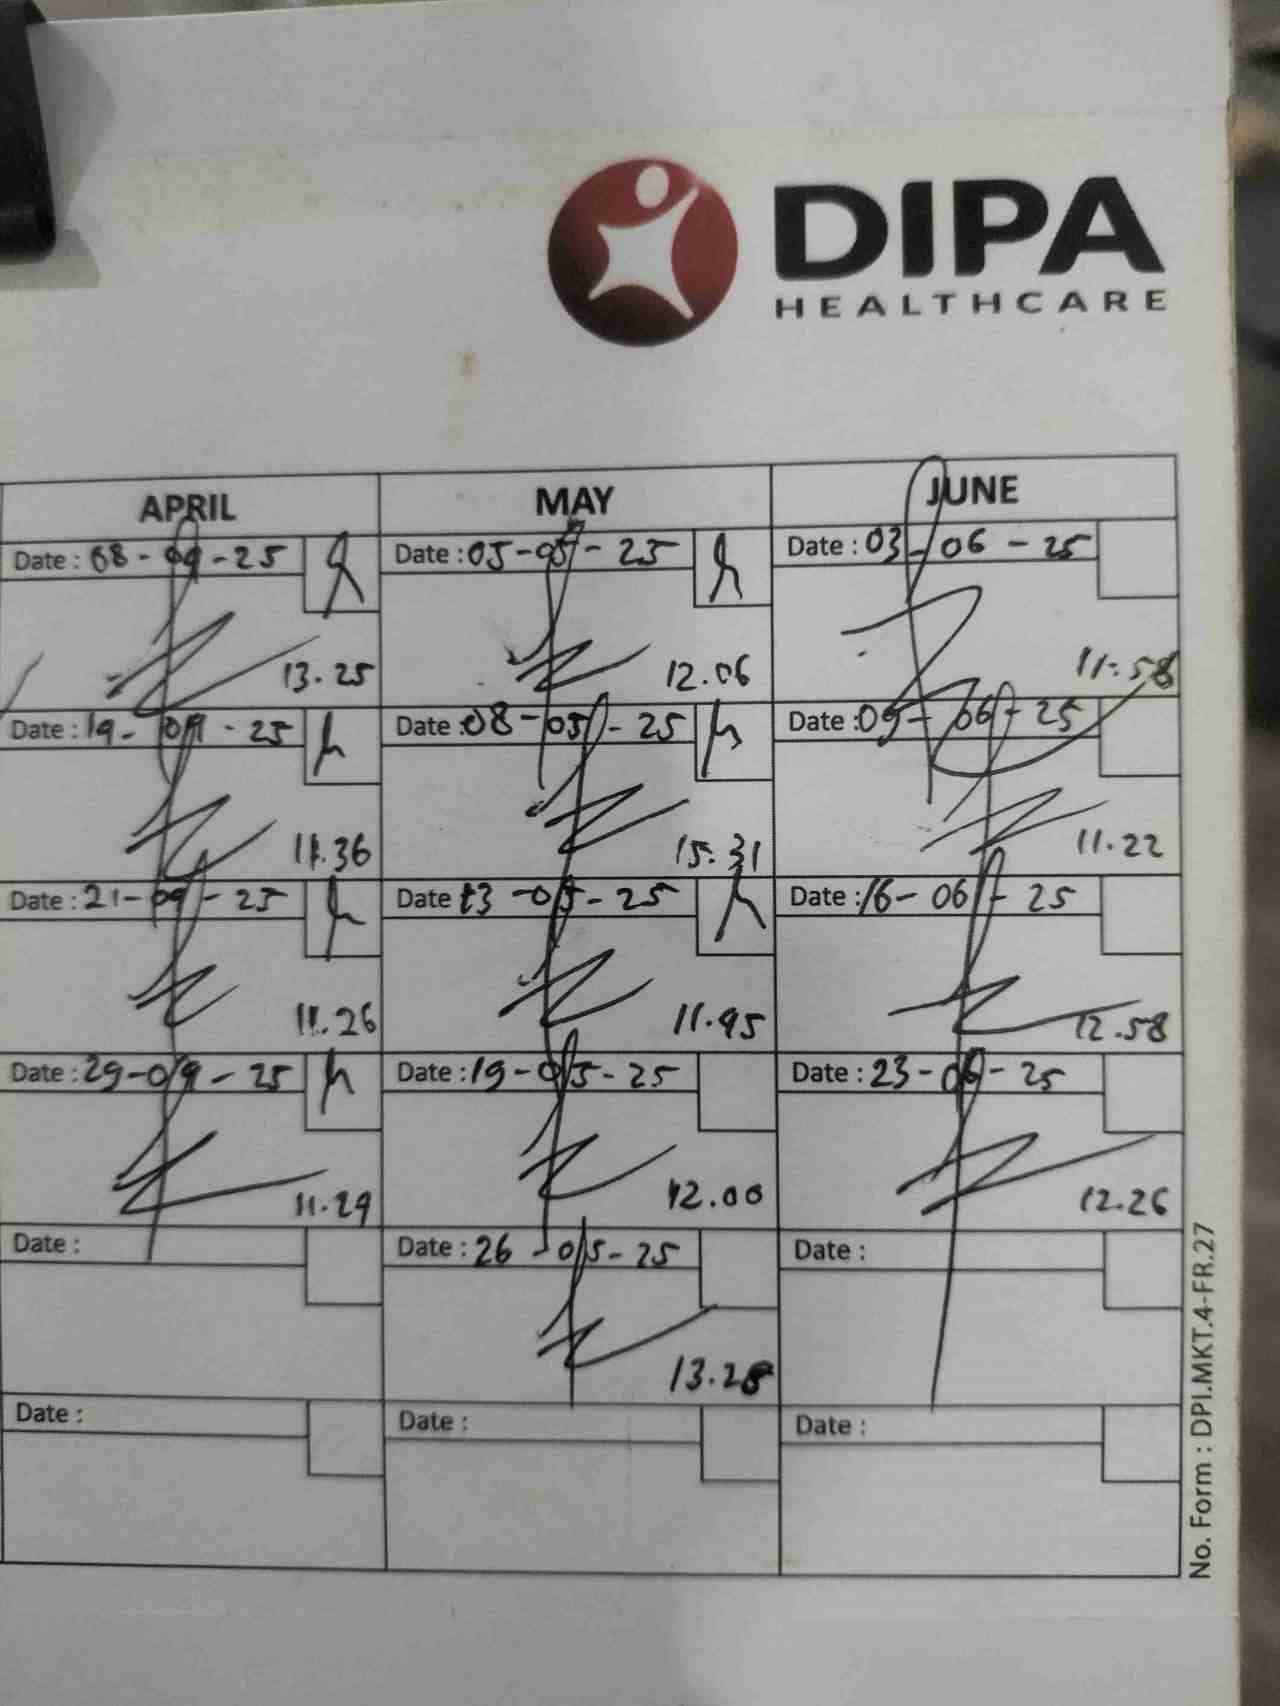 DIPA
HEALTHCARE
APRIL MAY JUNE
Date : 08-04-25 Date : 05-05-25 Date : 03-06-25
13.25 12.06 11.58
Date : 14-04-25 Date : 08-05-25 Date : 09-06-25
11.36 15.31 11.22
Date : 21-04-25 Date : 13-05-25 Date : 16-06-25
11.26 11.45 12.58
Date : 29-04-25 Date : 19-05-25 Date : 23-06-25
11.29 12.00 12.26
Date : Date : 26-05-25 Date :
13.28
Date : Date : Date :
No. Form : DPI.MKT.4-FR.27